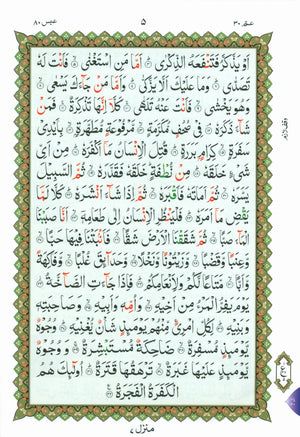 عبس ٨٠ ٥ عم ٣٠
اَوْ يَذَّكَّرُ فَتَنْفَعَهُ الذِّكْرٰى ۞ اَمَّا مَنِ اسْتَغْنٰى ۞ فَاَنْتَ لَهٗ
تَصَدّٰى ۞ وَمَا عَلَيْكَ اَلَّا يَزَّكّٰى ۞ وَاَمَّا مَنْ جَآءَكَ يَسْعٰى ۞
وَهُوَ يَخْشٰى ۞ فَاَنْتَ عَنْهُ تَلَهّٰى ۞ كَلَّا اِنَّهَا تَذْكِرَةٌ ۞ فَمَنْ
شَآءَ ذَكَرَهٗ ۞ فِيْ صُحُفٍ مُّكَرَّمَةٍ ۞ مَّرْفُوْعَةٍ مُّطَهَّرَةٍ ۞ بِاَيْدِيْ
سَفَرَةٍ ۞ كِرَامٍ بَرَرَةٍ ۞ قُتِلَ الْاِنْسَانُ مَآ اَكْفَرَهٗ ۞ مِنْ اَيِّ
شَيْءٍ خَلَقَهٗ ۞ مِنْ نُّطْفَةٍ خَلَقَهٗ فَقَدَّرَهٗ ۞ ثُمَّ السَّبِيْلَ
يَسَّرَهٗ ۞ ثُمَّ اَمَاتَهٗ فَاَقْبَرَهٗ ۞ ثُمَّ اِذَا شَآءَ اَنْشَرَهٗ ۞ كَلَّا لَمَّا
يَقْضِ مَآ اَمَرَهٗ ۞ فَلْيَنْظُرِ الْاِنْسَانُ اِلٰى طَعَامِهٖ ۞ اَنَّا صَبَبْنَا
الْمَآءَ صَبًّا ۞ ثُمَّ شَقَقْنَا الْاَرْضَ شَقًّا ۞ فَاَنْۢبَتْنَا فِيْهَا حَبًّا ۞
وَّعِنَبًا وَّقَضْبًا ۞ وَّزَيْتُوْنًا وَّنَخْلًا ۞ وَّحَدَآئِقَ غُلْبًا ۞ وَّفَاكِهَةً
وَّاَبًّا ۞ مَّتَاعًا لَّكُمْ وَلِاَنْعَامِكُمْ ۞ فَاِذَا جَآءَتِ الصَّآخَّةُ ۞
يَوْمَ يَفِرُّ الْمَرْءُ مِنْ اَخِيْهِ ۞ وَاُمِّهٖ وَاَبِيْهِ ۞ وَصَاحِبَتِهٖ
وَبَنِيْهِ ۞ لِكُلِّ امْرِئٍ مِّنْهُمْ يَوْمَئِذٍ شَاْنٌ يُّغْنِيْهِ ۞ وُجُوْهٌ
يَّوْمَئِذٍ مُّسْفِرَةٌ ۞ ضَاحِكَةٌ مُّسْتَبْشِرَةٌ ۞ وَوُجُوْهٌ
يَّوْمَئِذٍ عَلَيْهَا غَبَرَةٌ ۞ تَرْهَقُهَا قَتَرَةٌ ۞ اُولٰٓئِكَ هُمُ
الْكَفَرَةُ الْفَجَرَةُ ۞
منزل ٧